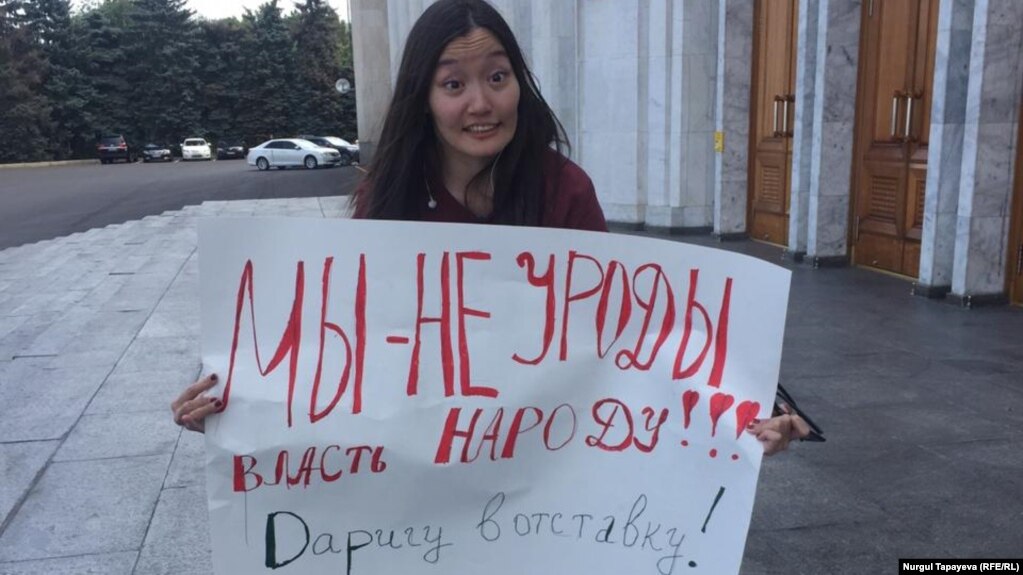 МЫ-НЕ УРОДЫ
ВЛАСТЬ НАРОДУ!!!
Даригу в отставку!
Nurgul Tapayeva (RFE/RL)